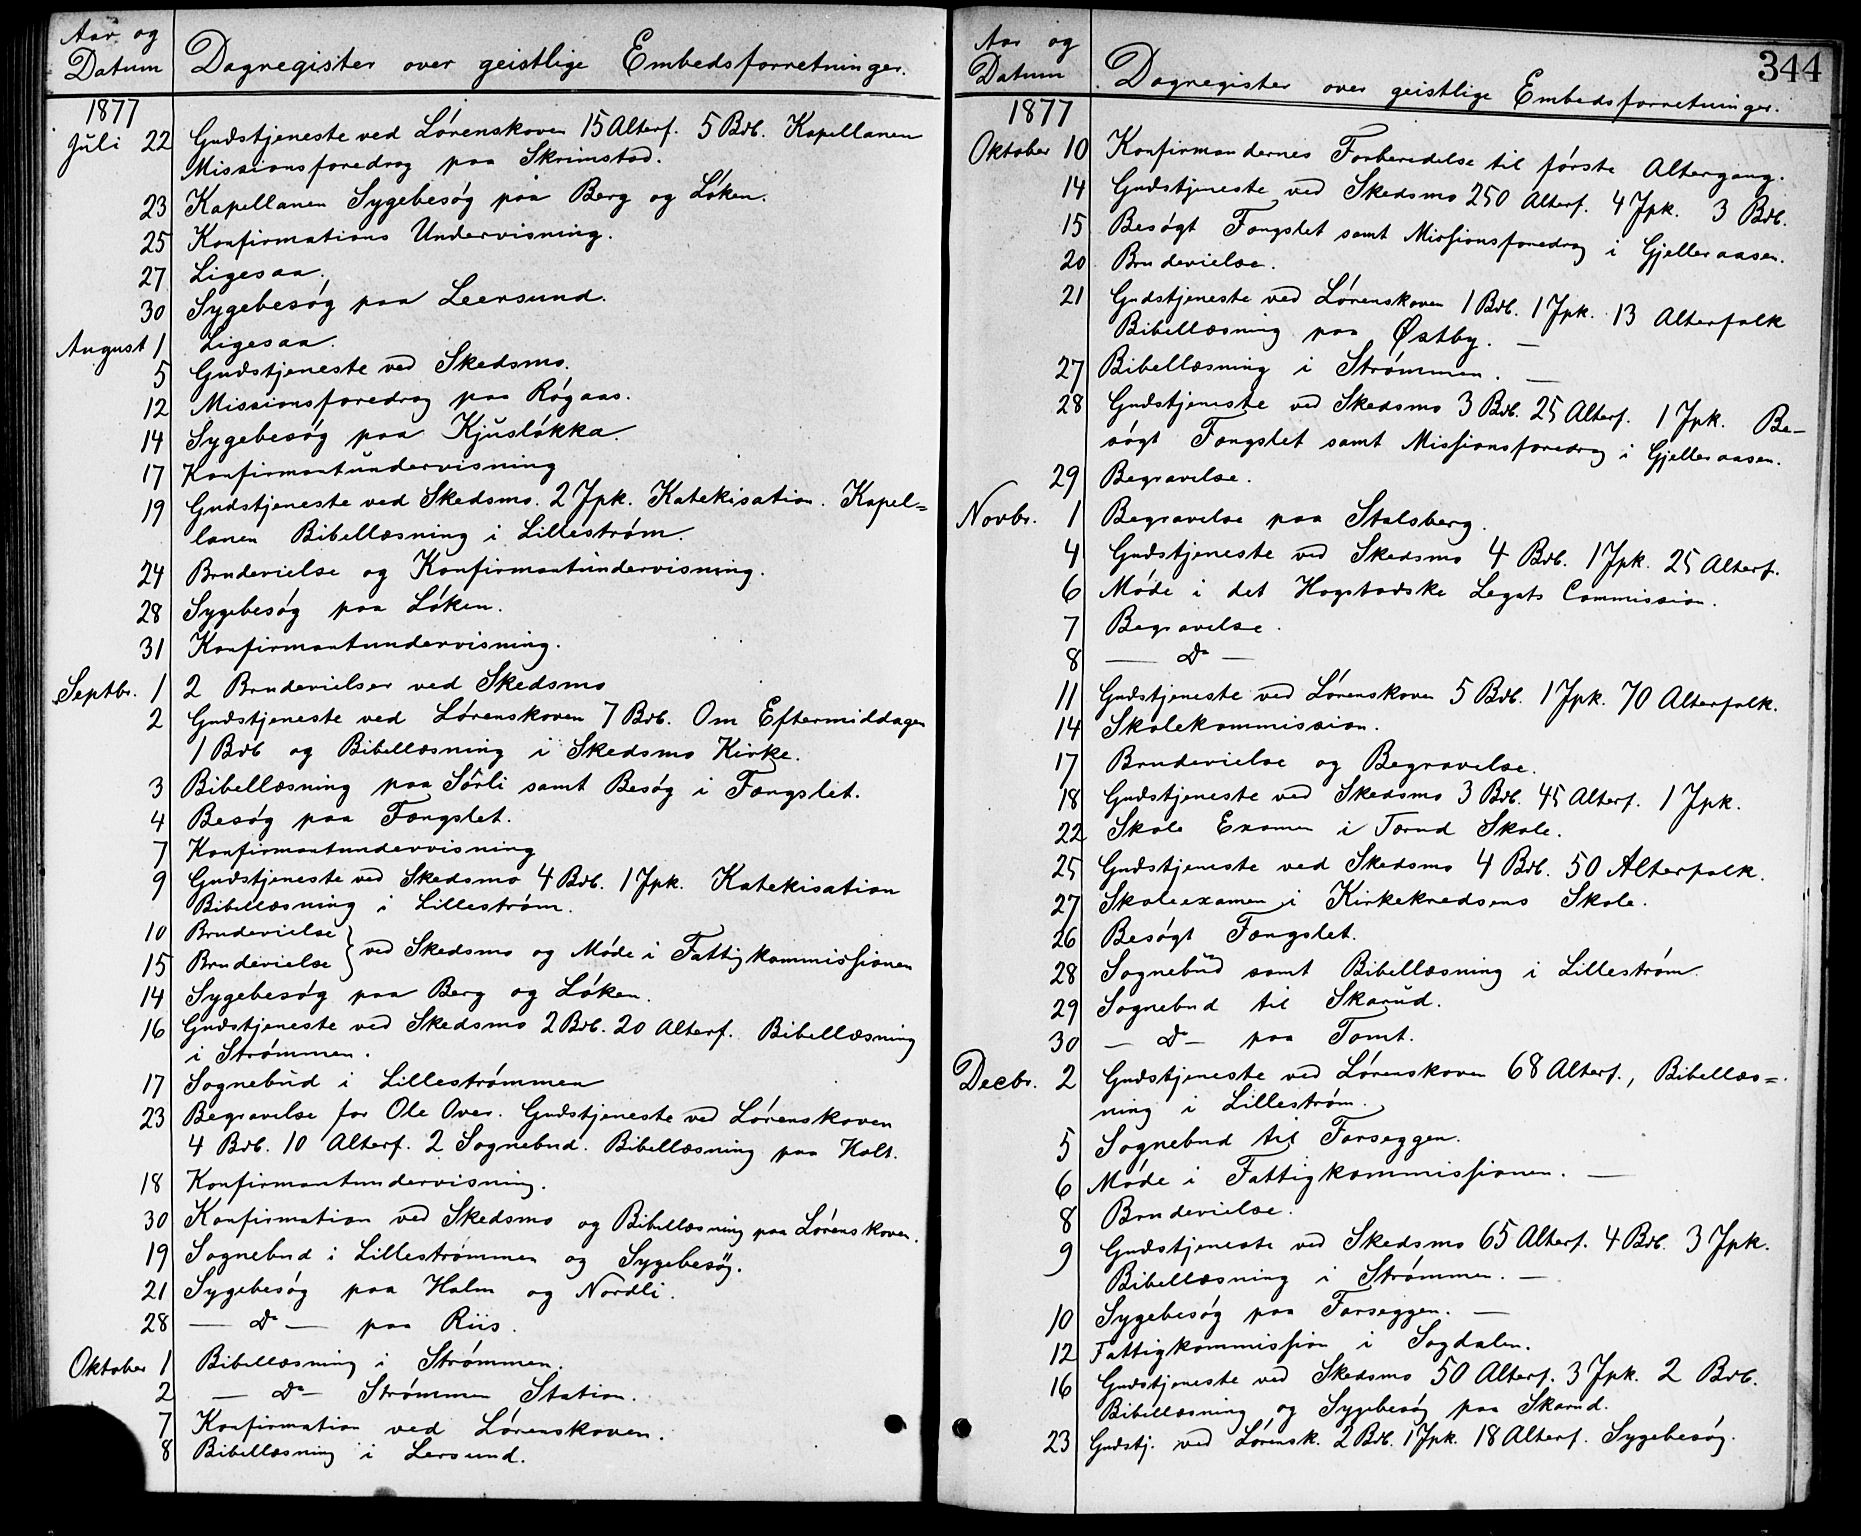 Aar og
Datum
Dagregister over geistlige Embedsforretninger.
1877
Juli 22 Gudstjeneste ved Lørenskoven 15 Alterf. 5 Brb. Kapellanen
Missionsforedrag paa Skrimstad.
23 Kapellanen Sygebesøg paa Berg og Løken.
25 Konfirmations Undervisning.
27 Ligesaa.
30 Sygebesøg paa Leersund.
August 1 Ligesaa.
5 Gudstjeneste ved Skedsmo.
12 Missionsforedrag paa Røgaas.
14 Sygebesøg paa Kjusløkka.
17 Konfirmantundervisning
19 Gudstjeneste ved Skedsmo. 2 Jpk. Katekisation. Kapel=
lanen Bibellæsning i Lillestrøm.
24 Brudevielse og Konfirmantundervisning.
28 Sygebesøg paa Løken.
31 Konfirmantundervisning.
Septbr. 1 2 Brudevielser ved Skedsmo
2 Gudstjeneste ved Lørenskoven 7 Brb. Om Eftermiddagen
1 Brb og Bibellæsning i Skedsmo Kirke.
3 Bibellæsning paa Sørli samt Besøg i Fængslet.
4 Besøg paa Fængslet.
7 Konfirmantundervisning
9 Gudstjeneste ved Skedsmo 4 Brb. 1 Jpk. Katekisation
Bibellæsning i Lillestrøm.
10 Brudevielse
15 Brudevielse } ved Skedsmo og Møde i Fattigkommissionen
14 Sygebesøg paa Berg og Løken.
16 Gudstjeneste ved Skedsmo 2 Brb. 20 Alterf. Bibellæsning
i Strømmen.
17 Sognebud i Lillestrømmen
23 Begravelse for Ole Over. Gudstjeneste ved Lørenskoven
4 Brb. 10 Alterf. 2 Sognebud. Bibellæsning paa Holt.
18 Konfirmantundervisning.
30 Konfirmation ved Skedsmo og Bibellæsning paa Lørenskoven.
19 Sognebud i Lillestrømmen og Sygebesøg.
21 Sygebesøg paa Holm og Nordli.
28 — Do — paa Riis.
Oktober 1 Bibellæsning i Strømmen.
2 — Do — Strømmen Station.
7 Konfirmation ved Lørenskoven.
8 Bibellæsning i Lersund.
344
Aar og
Datum
Dagregister over geistlige Embedsforretninger.
1877
Oktober 10 Konfirmandernes Forberedelse til første Altergang.
14 Gudstjeneste ved Skedsmo 250 Alterf. 4 Jpk. 3 Brb.
15 Besøgt Fængslet samt Missionsforedrag i Gjelleraasen.
20 Brudevielse.
21 Gudstjeneste ved Lørenskoven 1 Brb. 1 Jpk. 13 Alterfolk
Bibellæsning paa Østby. —
27 Bibellæsning i Strømmen. —
28 Gudstjeneste ved Skedsmo 3 Brb. 25 Alterf. 1 Jpk. Be-
søgt Fængslet samt Missionsforedrag i Gjelleraasen.
29 Begravelse.
Novbr. 1 Begravelse paa Stalsberg.
4 Gudstjeneste ved Skedsmo 4 Brb. 1 Jpk. 25 Alterf.
6 Møde i det Hogstadske Legats Commission.
7 Begravelse.
8 — Do —
11 Gudstjeneste ved Lørenskoven 5 Brb. 1 Jpk. 70 Alterfolk.
14 Skolekommission.
17 Brudevielse og Begravelse.
18 Gudstjeneste ved Skedsmo 3 Brb. 45 Alterf. 1 Jpk.
22 Skole Examen i Tærud Skole.
25 Gudstjeneste ved Skedsmo 4 Brb. 50 Alterfolk.
27 Skoleexamen i Kirkekredsens Skole.
26 Besøgt Fængslet.
28 Sognebud samt Bibellæsning i Lillestrøm.
29 Sognebud til Skarud.
30 — Do — paa Tomt.
Decbr. 2 Gudstjeneste ved Lørenskoven 68 Alterf., Bibellæs=
ning i Lillestrøm.
5 Sognebud til Farseggen.
6 Møde i Fattigkommissionen. —
8 Brudevielse.
9 Gudstjeneste ved Skedsmo 65 Alterf. 4 Brb. 3 Jpk.
Bibellæsning i Strømmen. —
10 Sygebesøg paa Farseggen. —
12 Fattigkommission i Sogdalen.
16 Gudstjeneste ved Skedsmo 50 Alterf. 3 Jpk. 2 Brb.
Bibellæsning og Sygebesøg paa Skarud.
23 Gudstj. ved Lørensk. 2 Brb. 1 Jpk. 18 Alterf. Sygebesøg.